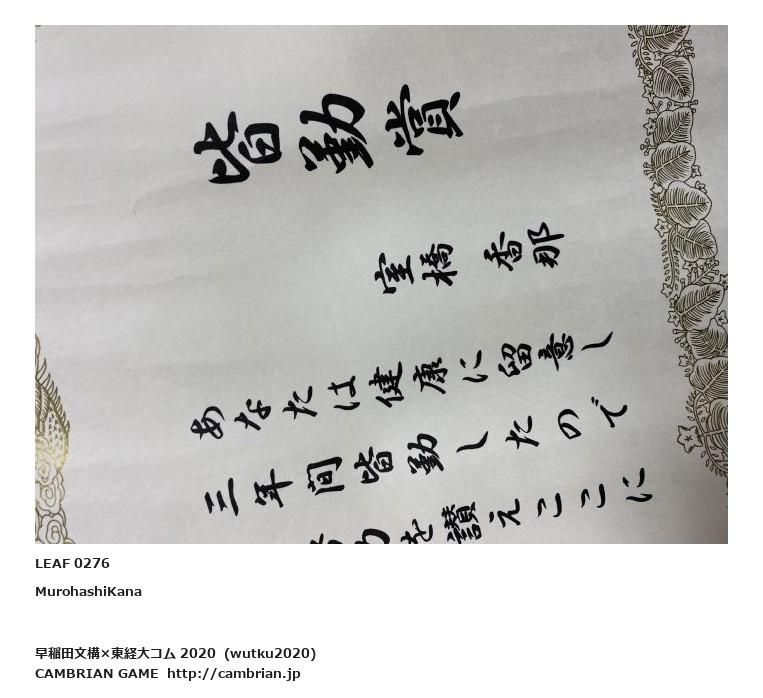 皆勤賞
室橋 香那
あなたは健康に留意し
三年間皆勤したので
力を讃えここに
LEAF 0276
MurohashiKana
早稲田文構×東経大コム 2020 (wutku2020)
CAMBRIAN GAME http://cambrian.jp